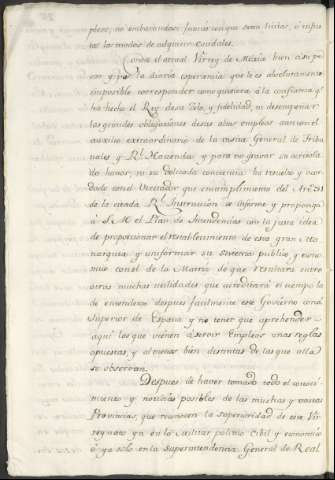 plexo, no embarazandose jamas en que sean licitas, ó injus
tas los modos de adquirir caudales.
Conoce el actual Virrey de Mexico bien á su pe
sar y por la diaria experiencia que le es absolutamente
imposible corresponder como quisiera á la confianza qe
ha hecho el Rey de su zelo, y fidelidad, ni desempeñar
las grandes obligaciones de sus altos empleos aun con el
auxilio extraordinario de la visita General de Tribu
nales y Rl. Haciendas, y para no gravar su acrisola
do honor, ni su delicada conciencia, ha resuelto y acor
dado con el Visitador que en cumplimiento del Arto.
de la citada Rl. Instruccion se informe y proponga
á S. M. el Plan de Intendencias con la justa idea
de proporcionar el restablecimiento de esta gran Mo
narquia y uniformar su sistema publico y econo
mico con el de la Matriz de que resultará entre
otras muchas utilidades que acreditará el tiempo la
de entenderse despues facilmente este Govierno con el
Superior de España y no tener que aprehender
aqui los que vienen á servir Empleos unas reglas
opuestas, y al menos bien distintas de las que allá
se observan.
Despues de haver tomado todo el conoci
miento y noticias posibles de las muchas y vastas
Provincias, que reconocen la superioridad de este Vir
reynato ya en lo Militar politico Cibil y economico
ó ya solo en la superintendencia General de Real